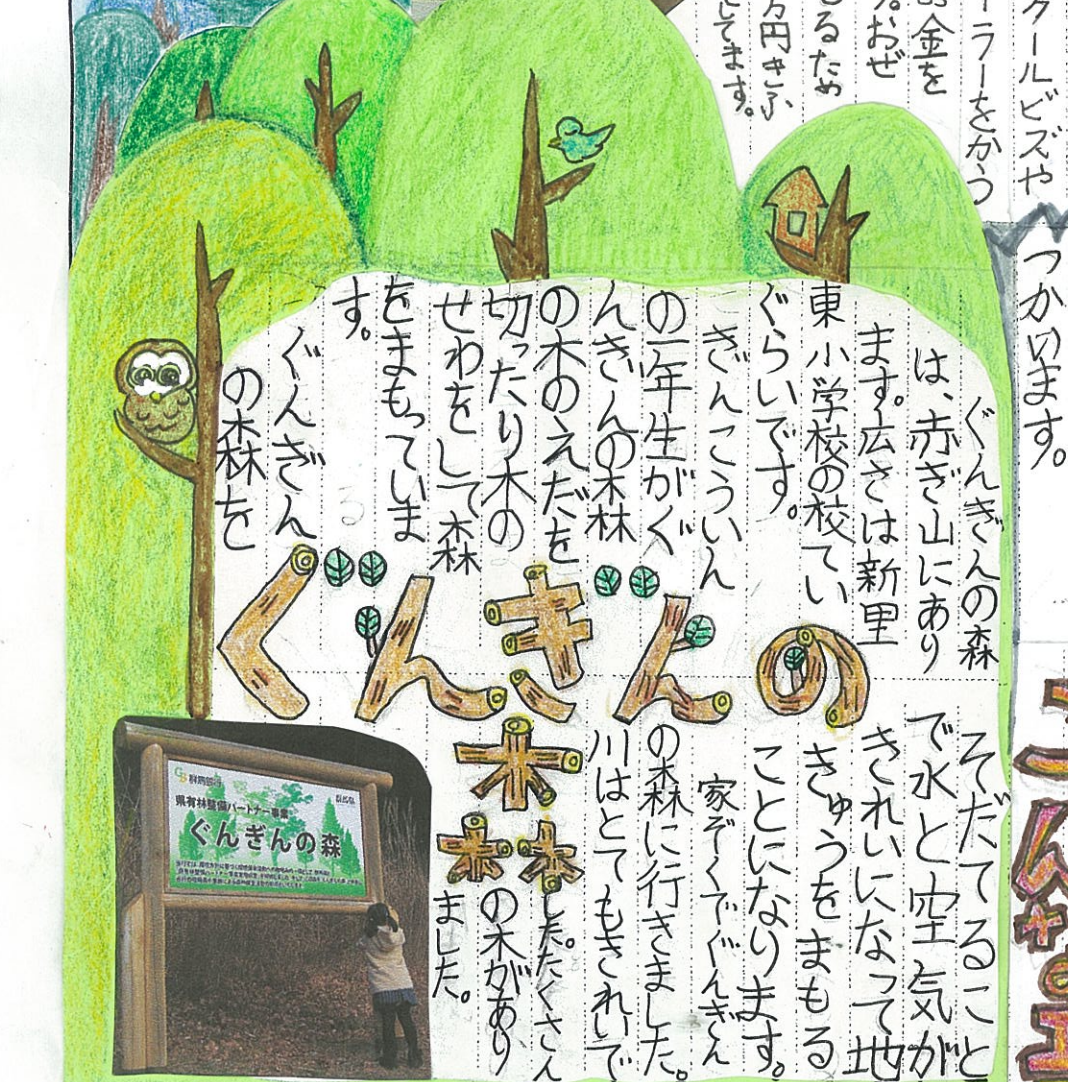 クールビズや
ーラーをかう
お金を
。おぜ
るため
万円きふ
してます。
つかいます。
ぐんぎんの森
は、赤ぎ山にあり
ます。広さは新里
東小学校の校てい
ぐらいです。
ぎんこういん
の一年生がぐ
んぎんの森林
の木のえだを
切ったり木の
せわをして森
をまもっていま
す。
ぐんぎん
の森を
ぐんぎんの
森
そだてること
で水と空気が
きれいになって地
きゅうをまもる
ことになります。
家ぞくでぐんぎん
の森に行きました。
川はとてもきれいで
した。たくさん
の木があり
ました。
群馬銀行
県有林整備パートナー事業
ぐんぎんの森